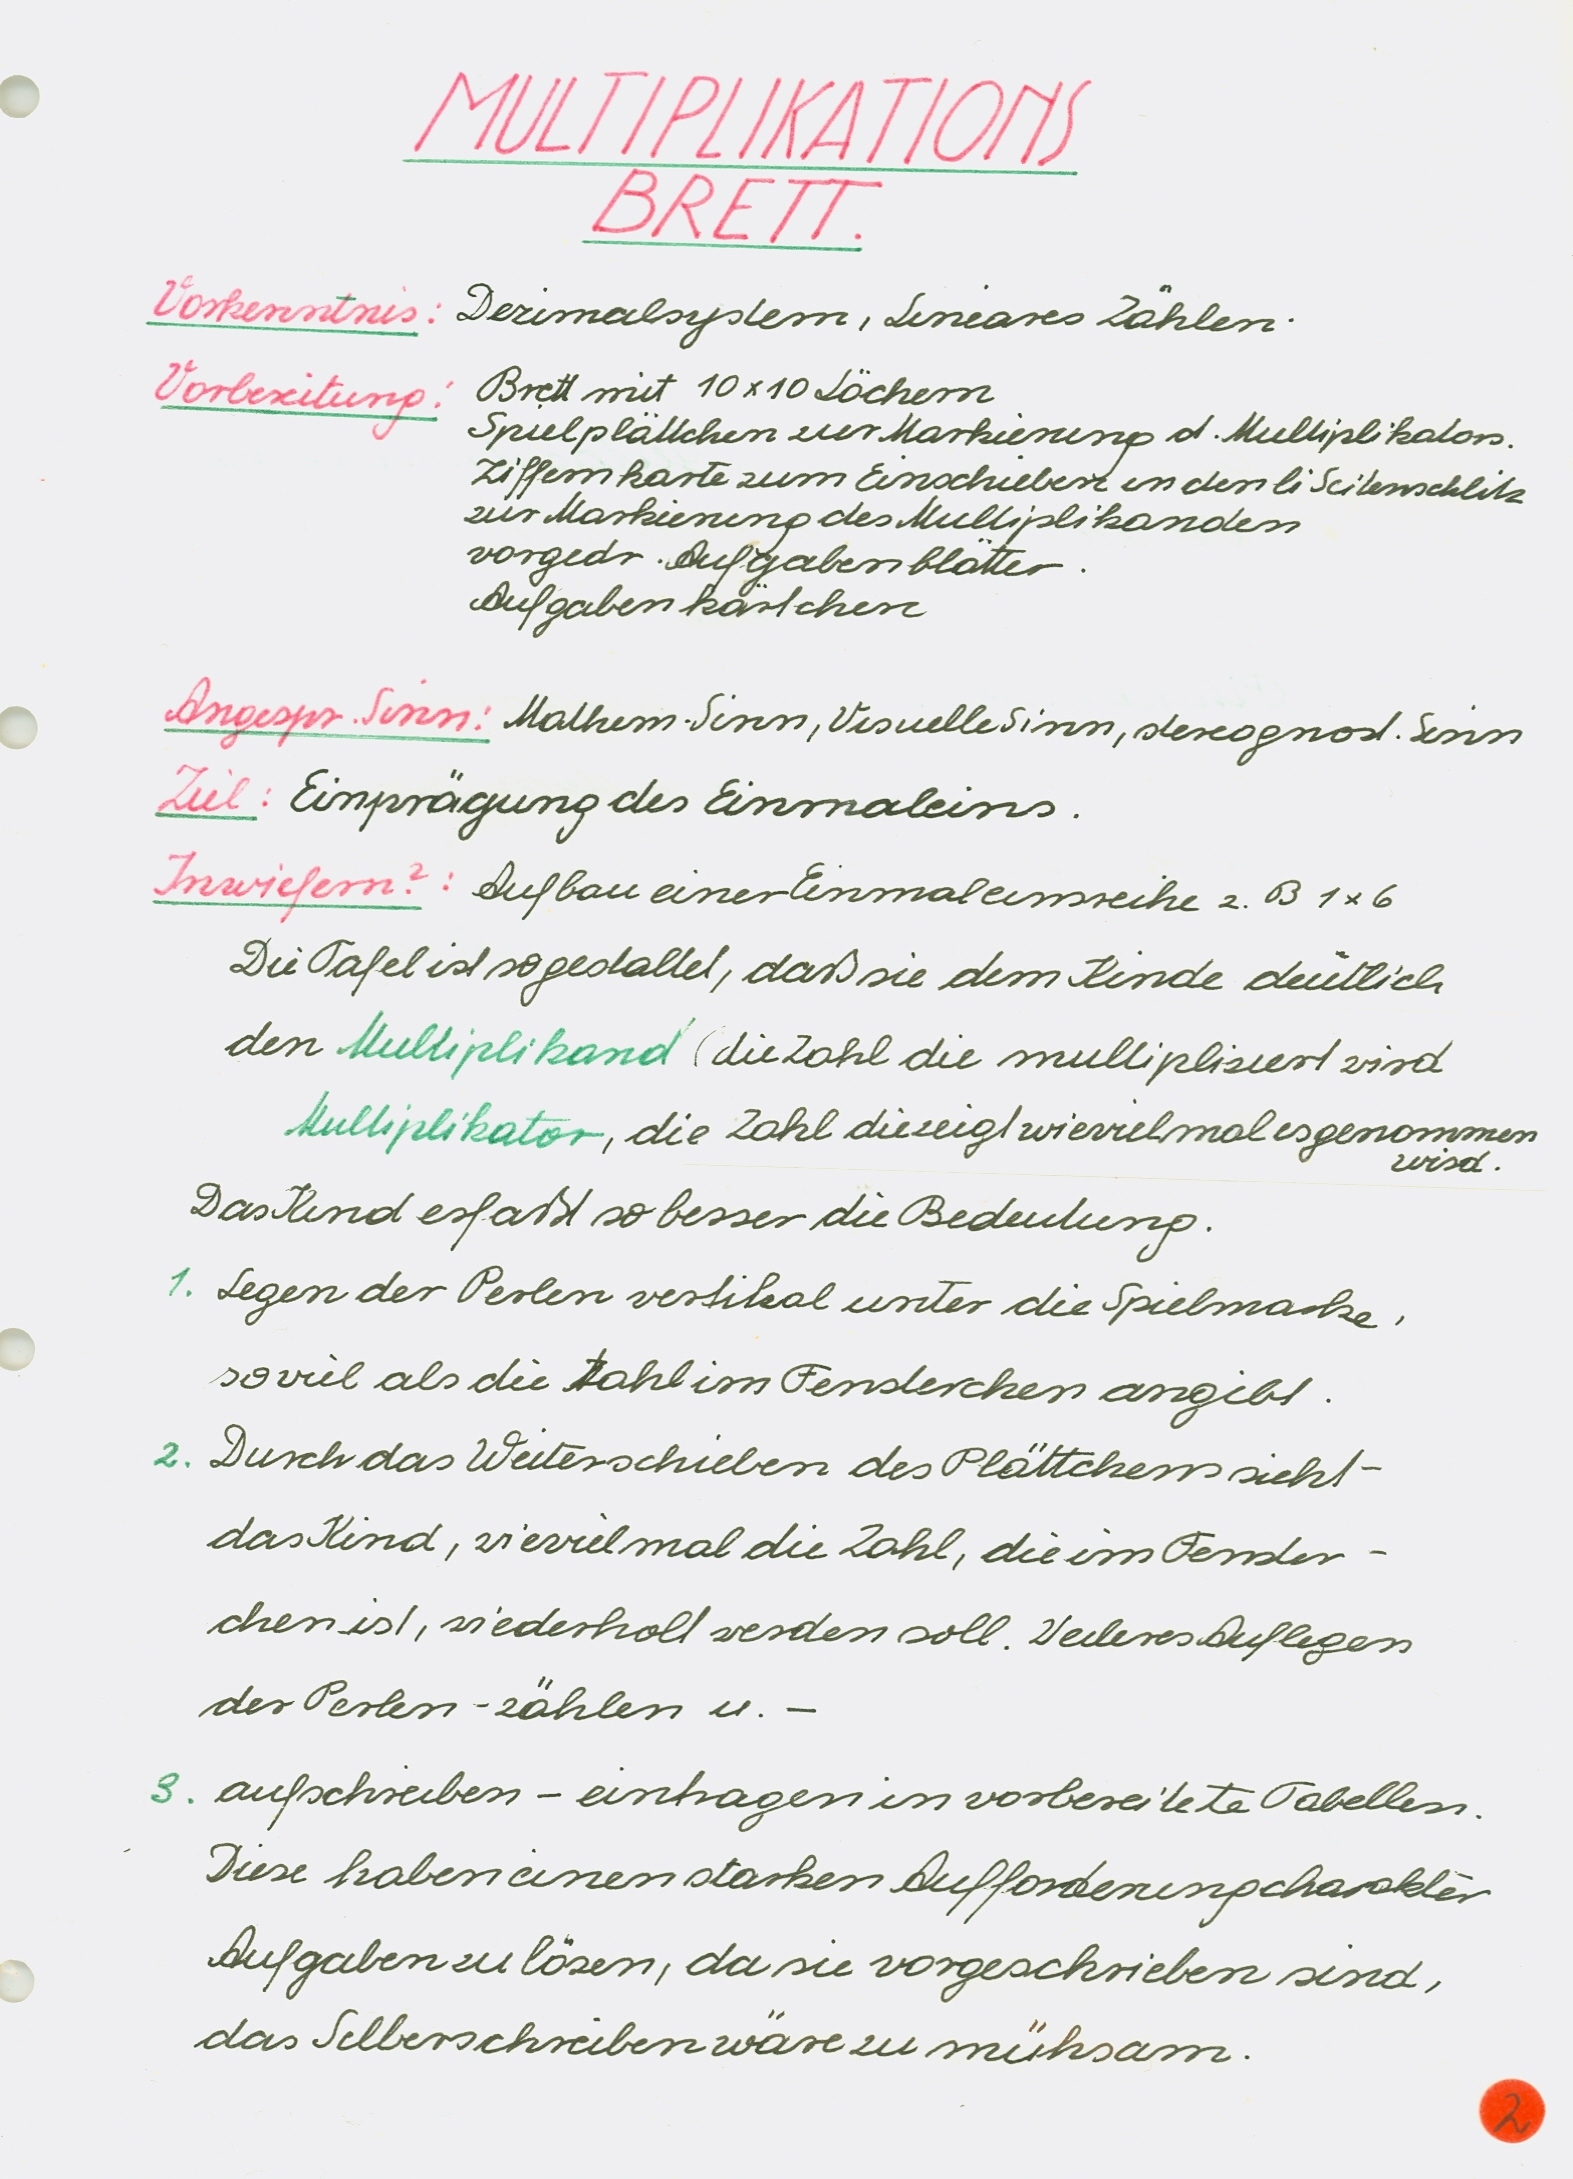 MULTIPLIKATIONS
BRETT.
Vorkenntnis: Dezimalsystem, Lineares Zählen.
Vorbereitung: Brett mit 10x10 Löchern
Spielplättchen zur Markierung d. Multiplikators.
Ziffernkarte zum Einschieben in den li Seitenschlitz
zur Markierung des Multiplikanden
vorgedr. Aufgabenblätter.
Aufgabenkärtchen
Angespr. Sinn: Mathem. Sinn, Visuelle Sinn, stereognost. Sinn
Ziel: Einprägung des Einmaleins.
Inwiefern?: Aufbau einer Einmaleinsreihe z. B 1x6
Die Tafel ist so gestaltet, daß sie dem Kinde deutlich
den Multiplikand (die Zahl die multipliziert wird
Multiplikator, die Zahl die zeigt wievielmal es genommen
wird.
Das Kind erfaßt so besser die Bedeutung.
1. Legen der Perlen vertikal unter die Spielmarke,
soviel als die Zahl im Fensterchen angibt.
2. Durch das Weiterschieben des Plättchens sieht-
das Kind, wievielmal die Zahl, die im Fenster-
chen ist, wiederholt werden soll. Weiteres Auflegen
der Perlen - zählen u. -
3. aufschreiben - eintragen in vorbereitete Tabellen.
Diese haben einen starken Aufforderungcharakter
Aufgaben zu lösen, da sie vorgeschrieben sind,
das Selberschreiben wäre zu mühsam.
2